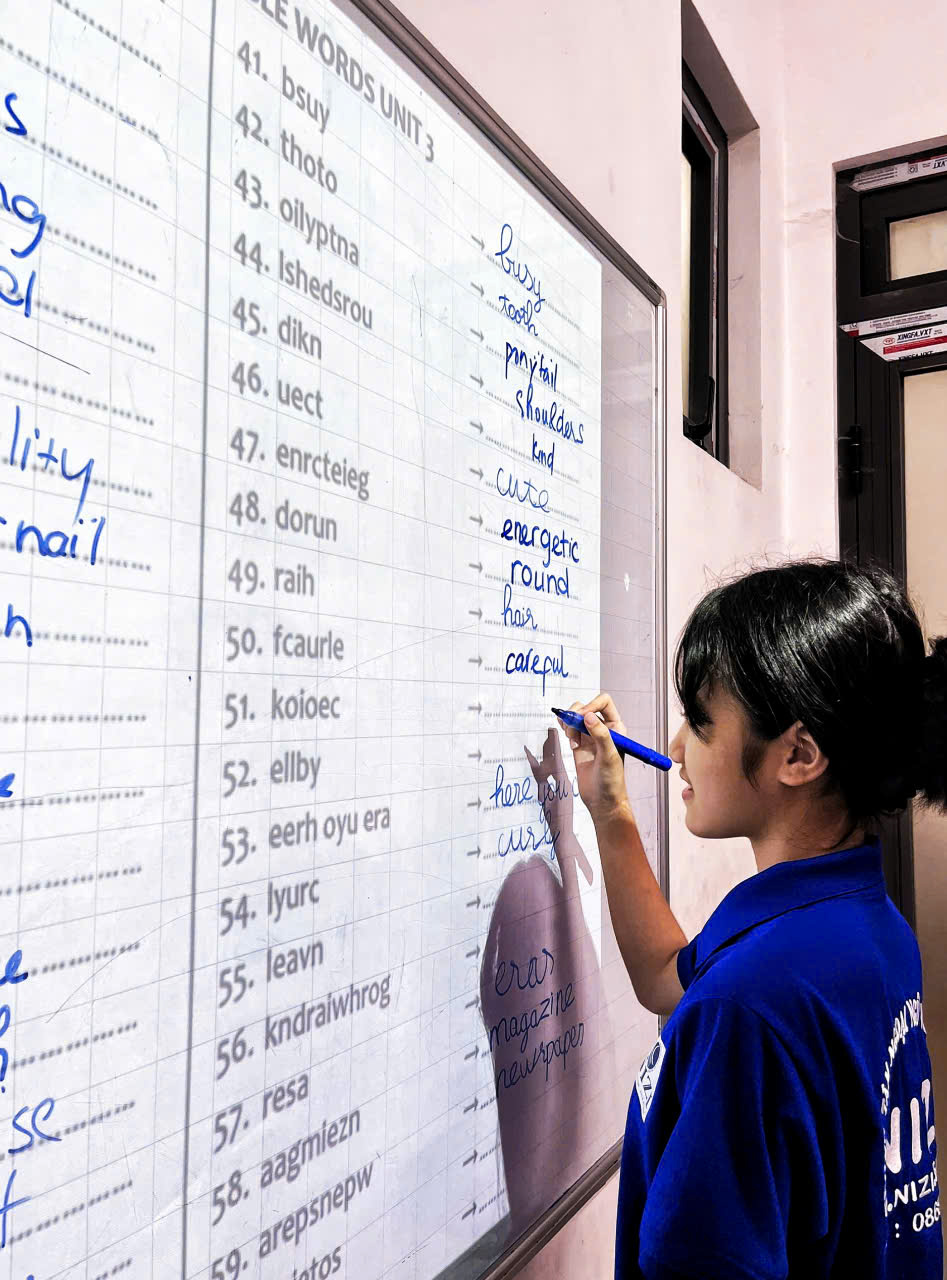 BLE WORDS UNIT 3
41. bsuy → busy
42. thoto → tooth
43. oilyptna → ponytail
44. lshedsrou → shoulders
45. dikn → kind
46. uect → cute
47. enrcteieg → energetic
48. dorun → round
49. raih → hair
50. fcaurle → careful
51. koioec →
52. ellby →
53. eerh oyu era → here you
54. lyurc → curly
55. leavn →
56. kndraiwhrog →
57. resa → eras
58. aagmiezn → magazine
59. arepsnepw → newspaper
s
ng
lity
nail
h
se
XINGFA.VXT